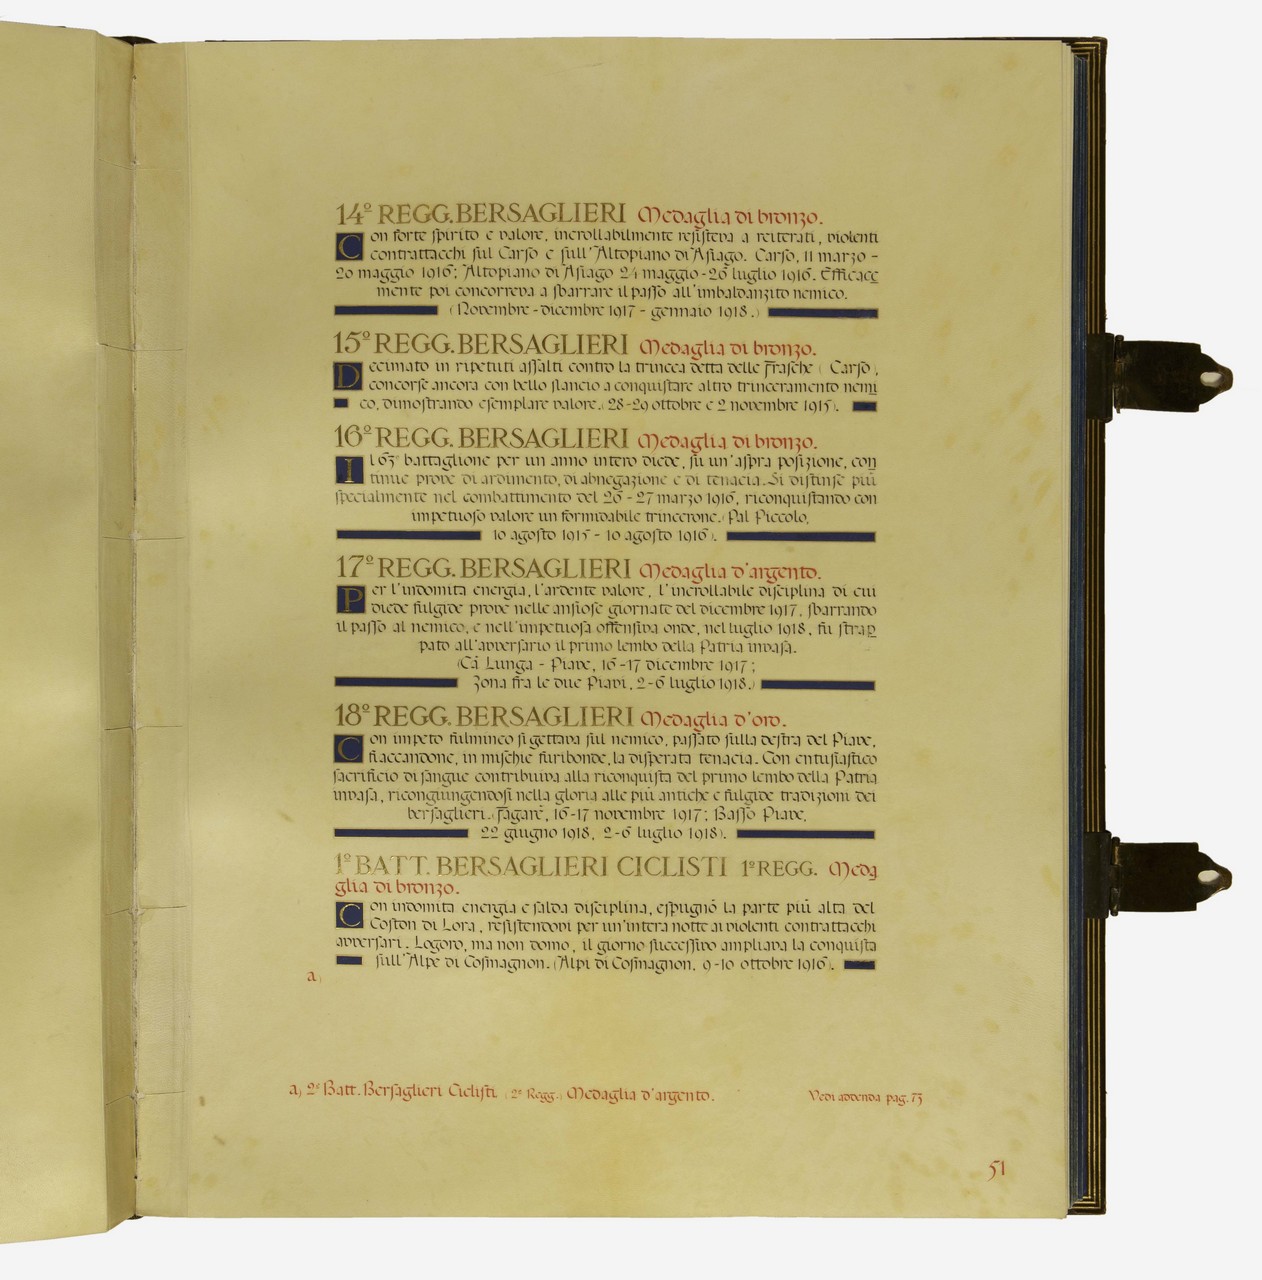 14º REGG. BERSAGLIERI Medaglia di bronzo.
Con forte spirito e valore, incrollabilmente resisteva a reiterati, violenti
contrattacchi sul Carso e sull'Altopiano di Asiago. Carso, 11 marzo -
20 maggio 1916; Altopiano di Asiago 24 maggio - 26 luglio 1916. Efficace
mente poi concorreva a sbarrare il passo all'imbaldanzito nemico.
(Novembre - dicembre 1917 - gennaio 1918.)
15º REGG. BERSAGLIERI Medaglia di bronzo.
Decimato in ripetuti assalti contro la trincea detta delle Frasche (Carso),
concorse ancora con bello slancio a conquistare altro trinceramento nemi
co, dimostrando esemplare valore. (28-29 ottobre e 2 novembre 1915).
16º REGG. BERSAGLIERI Medaglia di bronzo.
Il 63º battaglione per un anno intero diede, su un'aspra posizione, con
tinue prove di ardimento, di abnegazione e di tenacia. Si distinse più
specialmente nel combattimento del 26 - 27 marzo 1916, riconquistando con
impetuoso valore un formidabile trincerone. (Pal Piccolo,
10 agosto 1915 - 10 agosto 1916).
17º REGG. BERSAGLIERI Medaglia d'argento.
Per l'indomita energia, l'ardente valore, l'incrollabile disciplina di cui
diede fulgide prove nelle ansiose giornate del dicembre 1917, sbarrando
il passo al nemico, e nell'impetuosa offensiva onde, nel luglio 1918, fu strap
pato all'avversario il primo lembo della Patria invasa.
(Cà Lunga - Piave, 16-17 dicembre 1917;
Zona fra le due Piavi, 2-6 luglio 1918.)
18º REGG. BERSAGLIERI Medaglia d'oro.
Con impeto fulmineo si gettava sul nemico, passato sulla destra del Piave,
fiaccandone, in mischie furibonde, la disperata tenacia. Con entusiastico
sacrificio di sangue contribuiva alla riconquista del primo lembo della Patria
invasa, ricongiungendosi nella gloria alle più antiche e fulgide tradizioni dei
bersaglieri. (Fagarè, 16-17 novembre 1917; Basso Piave,
22 giugno 1918, 2-6 luglio 1918).
1º BATT. BERSAGLIERI CICLISTI 1º REGG. Meda
glia di bronzo.
Con indomita energia e salda disciplina, espugnò la parte più alta del
Coston di Lora, resistendovi per un'intera notte ai violenti contrattacchi
avversari. Logoro, ma non domo, il giorno successivo ampliava la conquista
sull'Alpe di Cosmagnon. (Alpi di Cosmagnon, 9-10 ottobre 1916).
a)
a) 2º Batt. Bersaglieri Ciclisti (2º Regg.) Medaglia d'argento. Vedi addenda pag. 73
51